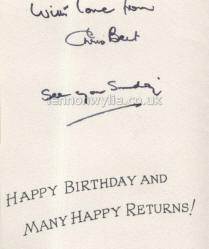 With love from
Chris Bert
See you Sunday
lennonwylie.co.uk
HAPPY BIRTHDAY AND
MANY HAPPY RETURNS!